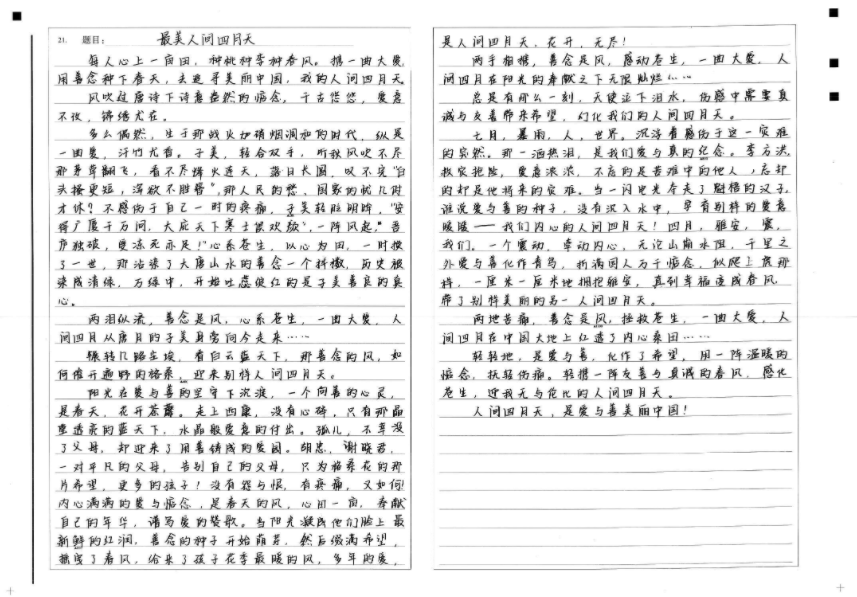 21. 题目： 最美人间四月天
每人心上一亩田，种桃种李种春风。携一曲大爱，
用善念种下春天，去追寻美丽中国，我的人间四月天
风吹过唐诗下诗意盎然的惦念，千古悠悠，爱意
不改，锦绣尤在。
多么偶然，生于那战火如硝烟涧的时代，纵是
一曲爱，汗竹尤香。子美，轻合双手，听秋风吹不尽
那茅草翻飞，看不尽烽火连天，落日长圆，叹不实“白
头搔更短，浑欲不胜簪”，那人民的愁，国家的忧几时
才休？不感伤于自己一时的疼痛，子美轻脸明眸，“安
得广厦千万间，大庇天下寒士俱欢颜”，一阵风起，“吾
庐独破，受冻死亦足！”心系苍生，以心为田，一时换
了一世，那沾染了大唐山水的善念一个抖擞，历史被
染成清绿，万绿中，开始吐蕊使红的是子美善良的真
心。
两泪纵流，善念是风，心系苍生，一曲大爱，人
间四月从唐月的子美身旁向今走来……
辗转几路尘埃，看白云蓝天下，那善念的风，如
何催开遍野的格桑，迎来别样人间四月天。
阳光在爱与善的坚守下沉淀，一个向善的心灵，
是春天，花开荼蘼。走上西藏，没有心碎，只有那晶
莹透亮的蓝天下，水晶般爱意的付出。孤儿，不幸没
了父母，却迎来了用善铸成的爱园。胡忠，谢晓君，
一对平凡的父母，告别自己的父母，只为格桑花的那
片希望，更多的孩子！没有怨与恨，有疼痛，又如何！
内心满满的爱与惦念，是春天的风，心田一亩，奉献
自己的年华，谱写爱的赞歌。当阳光凝成他们脸上最
新鲜的红润，善念的种子开始萌芽，然后缀满希望，
摇曳了春风，给来了孩子花季最暖的风，多年的爱，
是人间四月天，花开，无尽！
两手相携，善念是风，感动苍生，一曲大爱，人
间四月在阳光的奉献之下无限灿烂……
总是有那么一刻，天使泣下泪水，伤感中需要真
诚与友善带来希望，幻化我们的人间四月天。
七月，暴雨，人，世界。沉浮着感伤于这一灾难
的突然。那一洒热泪，是我们爱与真的纪念。李方洪，
救灾抢险，爱意浓浓，不忘的是苦难中的他人，忘却
的却是他将来的灾难。当一闪电光夺走了魁梧的汉子，
谁说爱与善的种子，没有沉入水中，孕育别样的爱意
暖暖——我们内心的人间四月天！四月，雅安，震，
我们。一个震动，牵动内心，无论山崩水阻，千里之
外爱与善化作青鸟，折满国人万千惦念，似爬上藤那
样，一厘米一厘米地拥抱雅安，直到幸福凌成春风，
带了别样美丽的另一人间四月天。
两地苦痛，善念是风，拯救苍生，一曲大爱，人
间四月在中国大地上红透了内心桑田……
轻轻地，是爱与善，化作了希望，用一阵温暖的
惦念，抚轻伤痛。轻携一阵友善与真诚的春风，感化
苍生，迎我无与伦比的人间四月天。
人间四月天，是爱与善美丽中国！